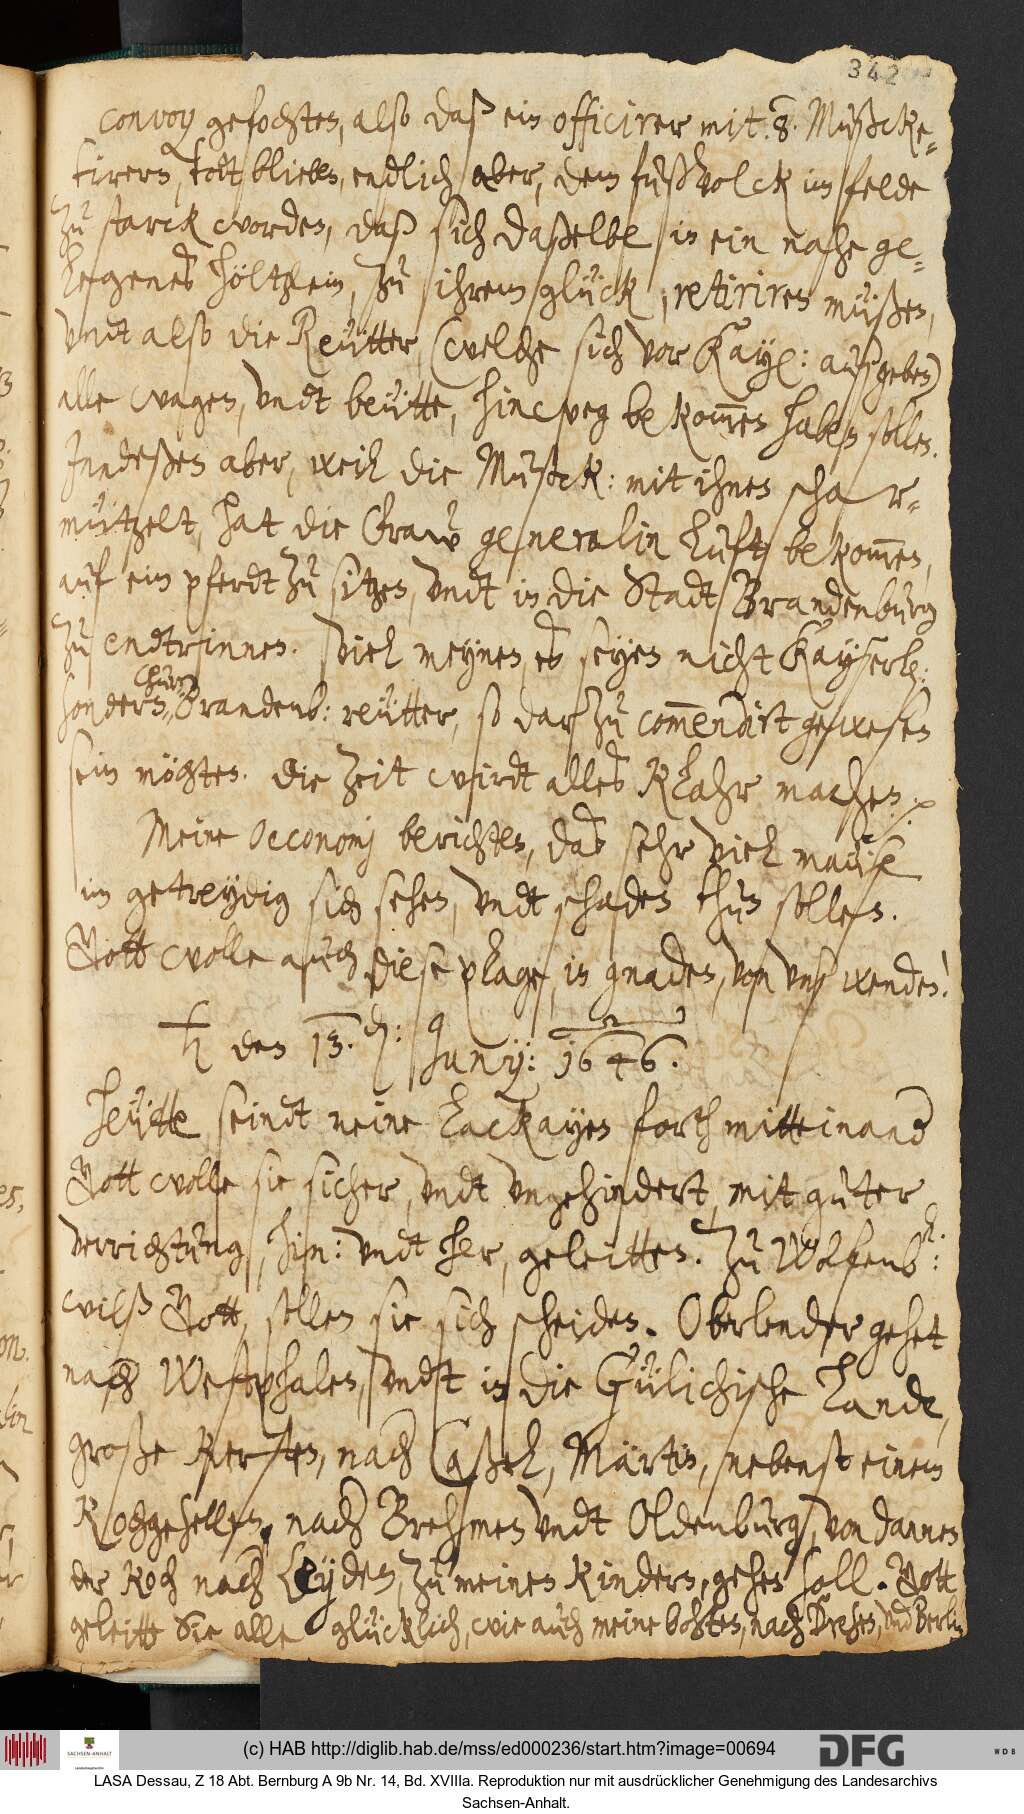 342
convoy gefochten, also daß ein officirer mit .8. Mußcke-
tirern, todt blieben, endlich aber, dem fußvolck im felde
zu starck worden, daß sich daßelbe in ein nahe ge-
legenes höltzlein, zu ihrem glück, retiriren müßen,
undt also die Reütter, (welche sich vor Kayß: außgeben)
alle wagen, undt beütte, hinweg bekom̄en haben sollen.
Inndeßen aber, weil die Mußck: mit ihnen schar-
mützelt, hat die Fraw generalin luft bekom̄en,
auf ein pferdt zu sitzen, undt in die Stadt Brandenburg
zu endtrinnen. Viel meynen es seyen nicht Kayserl:
sondern Chur Brandenb: reütter, so darzu com̄endirt gewesen
sein möchten. Die zeit wirdt alles klahr machen. ./.
Meine Oeconomj berichten, das sehr viel maüse
im getreydig sich sehen, undt schaden thun sollen.
Gott wolle auch diese plage, in gnaden, von unß wenden!
♄ den 13. d: Junij: 1646.
Heütte seindt meine lackayen forth mitteinand
Gott wolle sie sicher, undt ungehindert, mit guter
verrichtung, hin: undt her, geleitten. Zu Wolfenb:
wilß Gott, sollen sie sich scheiden. Oberlender gehet
nach Westphalen, undt in die Gülichische Lande,
große Kersten, nach Caßel, Märtin, nebenst einem
Kochgesellen, nach Brehmen undt Oldenburg, von dannen
der Koch nach Leyden, zu meinen Kindern, gehen soll. Gott
geleitte Sie alle glücklich, wie auch meine bohten, nach Dresen, und Berlin
(c) HAB http://diglib.hab.de/mss/ed000236/start.htm?image=00694
SACHSEN-ANHALT
DFG
WDB
LASA Dessau, Z 18 Abt. Bernburg A 9b Nr. 14, Bd. XVIIIa. Reproduktion nur mit ausdrücklicher Genehmigung des Landesarchivs
Sachsen-Anhalt.